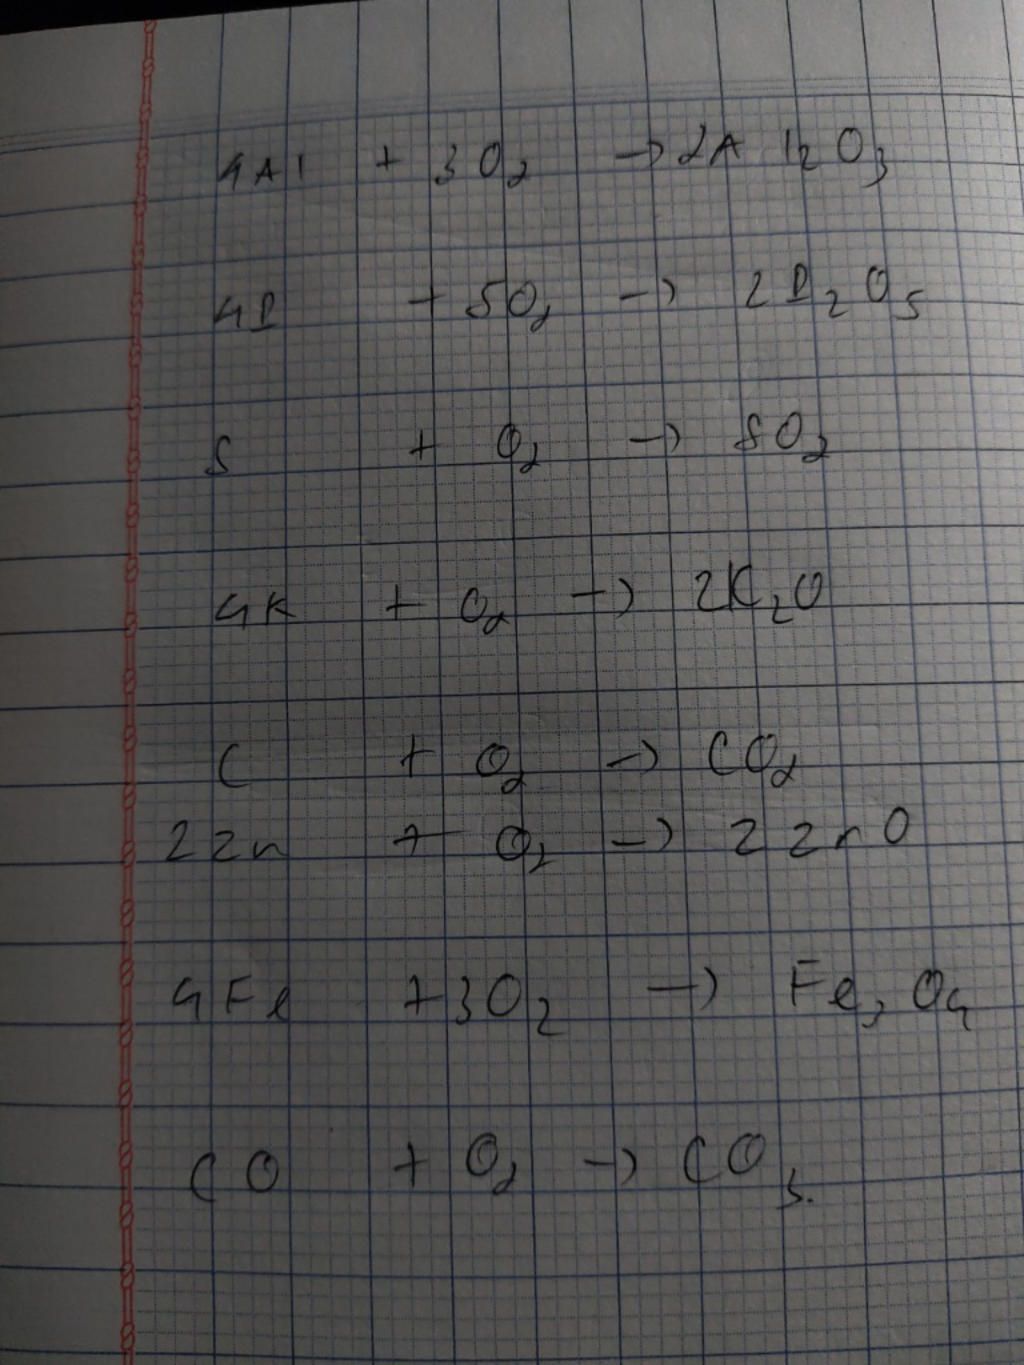 4Al + 3O₂ → 2Al₂O₃
4P + 5O₂ → 2P₂O₅
S + O₂ → SO₂
4K + O₂ → 2K₂O
C + O₂ → CO₂
2Zn + O₂ → 2ZnO
4Fe + 3O₂ → Fe₃O₄
CO + O₂ → CO₃.